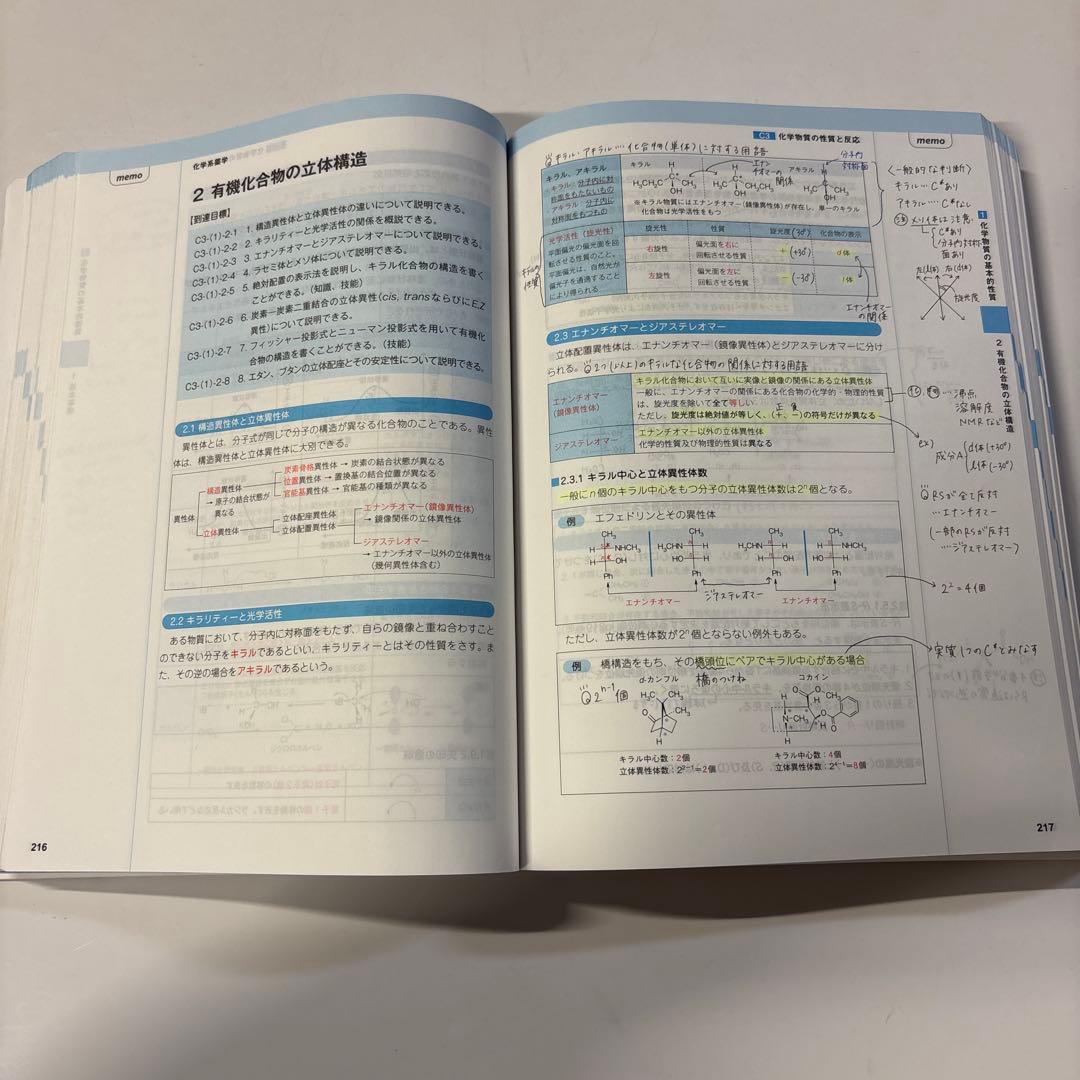 化学系薬学
memo
2 有機化合物の立体構造
【到達目標】
C3-(1)-2-1 1. 構造異性体と立体異性体の違いについて説明できる。
C3-(1)-2-2 2. キラリティーと光学活性の関係を概説できる。
C3-(1)-2-3 3. エナンチオマーとジアステレオマーについて説明できる。
C3-(1)-2-4 4. ラセミ体とメソ体について説明できる。
C3-(1)-2-5 5. 絶対配置の表示法を説明し、キラル化合物の構造を書く
ことができる。(知識、技能)
C3-(1)-2-6 6. 炭素―炭素二重結合の立体異性(cis, transならびにE,Z
異性)について説明できる。
C3-(1)-2-7 7. フィッシャー投影式とニューマン投影式を用いて有機化
合物の構造を書くことができる。(技能)
C3-(1)-2-8 8. エタン、ブタンの立体配座とその安定性について説明できる。
2.1 構造異性体と立体異性体
異性体とは、分子式が同じで分子の構造が異なる化合物のことである。異性
体は、構造異性体と立体異性体に大別できる。
炭素骨格異性体 → 炭素の結合状態が異なる
構造異性体 位置異性体 → 置換基の結合位置が異なる
→ 原子の結合状態が 官能基異性体 → 官能基の種類が異なる
異なる
異性体
エナンチオマー(鏡像異性体)
立体配座異性体 → 鏡像関係の立体異性体
立体異性体 立体配置異性体
ジアステレオマー
→ エナンチオマー以外の立体異性体
(幾何異性体含む)
2.2 キラリティーと光学活性
ある物質において、分子内に対称面をもたず、自らの鏡像と重ね合わすこと
のできない分子をキラルであるといい、キラリティーとはその性質をさす。ま
た、その逆の場合をアキラルであるという。
216
C3 化学物質の性質と反応
memo
キラル・アキラル…化合物(単体)に対する用語
キラル、アキラル
・キラル:分子内に対
称面をもたないもの
・アキラル:分子内に
対称面をもつもの
キラル
エナンチオマーの関係
アキラル
分子内対称面
H3CH2C C* CH3
H3C C* CH2CH3
H3C C CH3
H
OH
※キラル物質にはエナンチオマー(鏡像異性体)が存在し、単一のキラル
化合物は光学活性をもつ
光学活性(旋光性)
平面偏光の偏光面を回
転させる性質のこと。
平面偏光は、自然光が
偏光子を通過すること
により得られる
旋光性 性質 旋光度(30°) 化合物の表示
右旋性 偏光面を右に回転させる性質 +(+30°) d体
左旋性 偏光面を左に回転させる性質 −(−30°) l体
エナンチオマーの関係
〈一般的な判断〉
キラル… C*あり
アキラル… C*なし
メソ体は注意
C*あり
分子内対称面あり
左(l体) 右(d体)
旋光度
2.3 エナンチオマーとジアステレオマー
立体配置異性体は、エナンチオマー(鏡像異性体)とジアステレオマーに分け
られる。2つ(以上)のキラルな化合物の関係に対する用語
エナンチオマー
(鏡像異性体)
キラル化合物において互いに実像と鏡像の関係にある立体異性体
一般に、エナンチオマーの関係にある化合物の化学的・物理的性質
は、旋光度を除いて全て等しい
正負
ただし、旋光度は絶対値が等しく、(+、−)の符号だけが異なる
ジアステレオマー
エナンチオマー以外の立体異性体
化学的性質及び物理的性質は異なる
…沸点
溶解度
NMRなど
ex)
成分A d体(+30°)
l体(−30°)
RSが全て反対
…エナンチオマー
(一部のRSが反対
…ジアステレオマー)
2.3.1 キラル中心と立体異性体数
一般にn個のキラル中心をもつ分子の立体異性体数は2ⁿ個となる。
例 エフェドリンとその異性体
CH3 CH3 CH3 CH3
H NHCH3 H3CHN H H3CHN H H NHCH3
H OH HO H H OH HO H
Ph Ph Ph Ph
エナンチオマー ジアステレオマー エナンチオマー
2²=4個
ただし、立体異性体数が2ⁿ個とならない例外もある。
例 橋構造をもち、その橋頭位にペアでキラル中心がある場合
実質1つのC*とみなす
2ⁿ⁻¹個
橋のつけね
d-カンフル
コカイン
H3C CH3
CH3
O
H
N-CH3
キラル中心数:2個
立体異性体数:2²⁻¹=2個
キラル中心数:4個
立体異性体数:2⁴⁻¹=8個
1 化学物質の基本的性質
2 有機化合物の立体構造
217